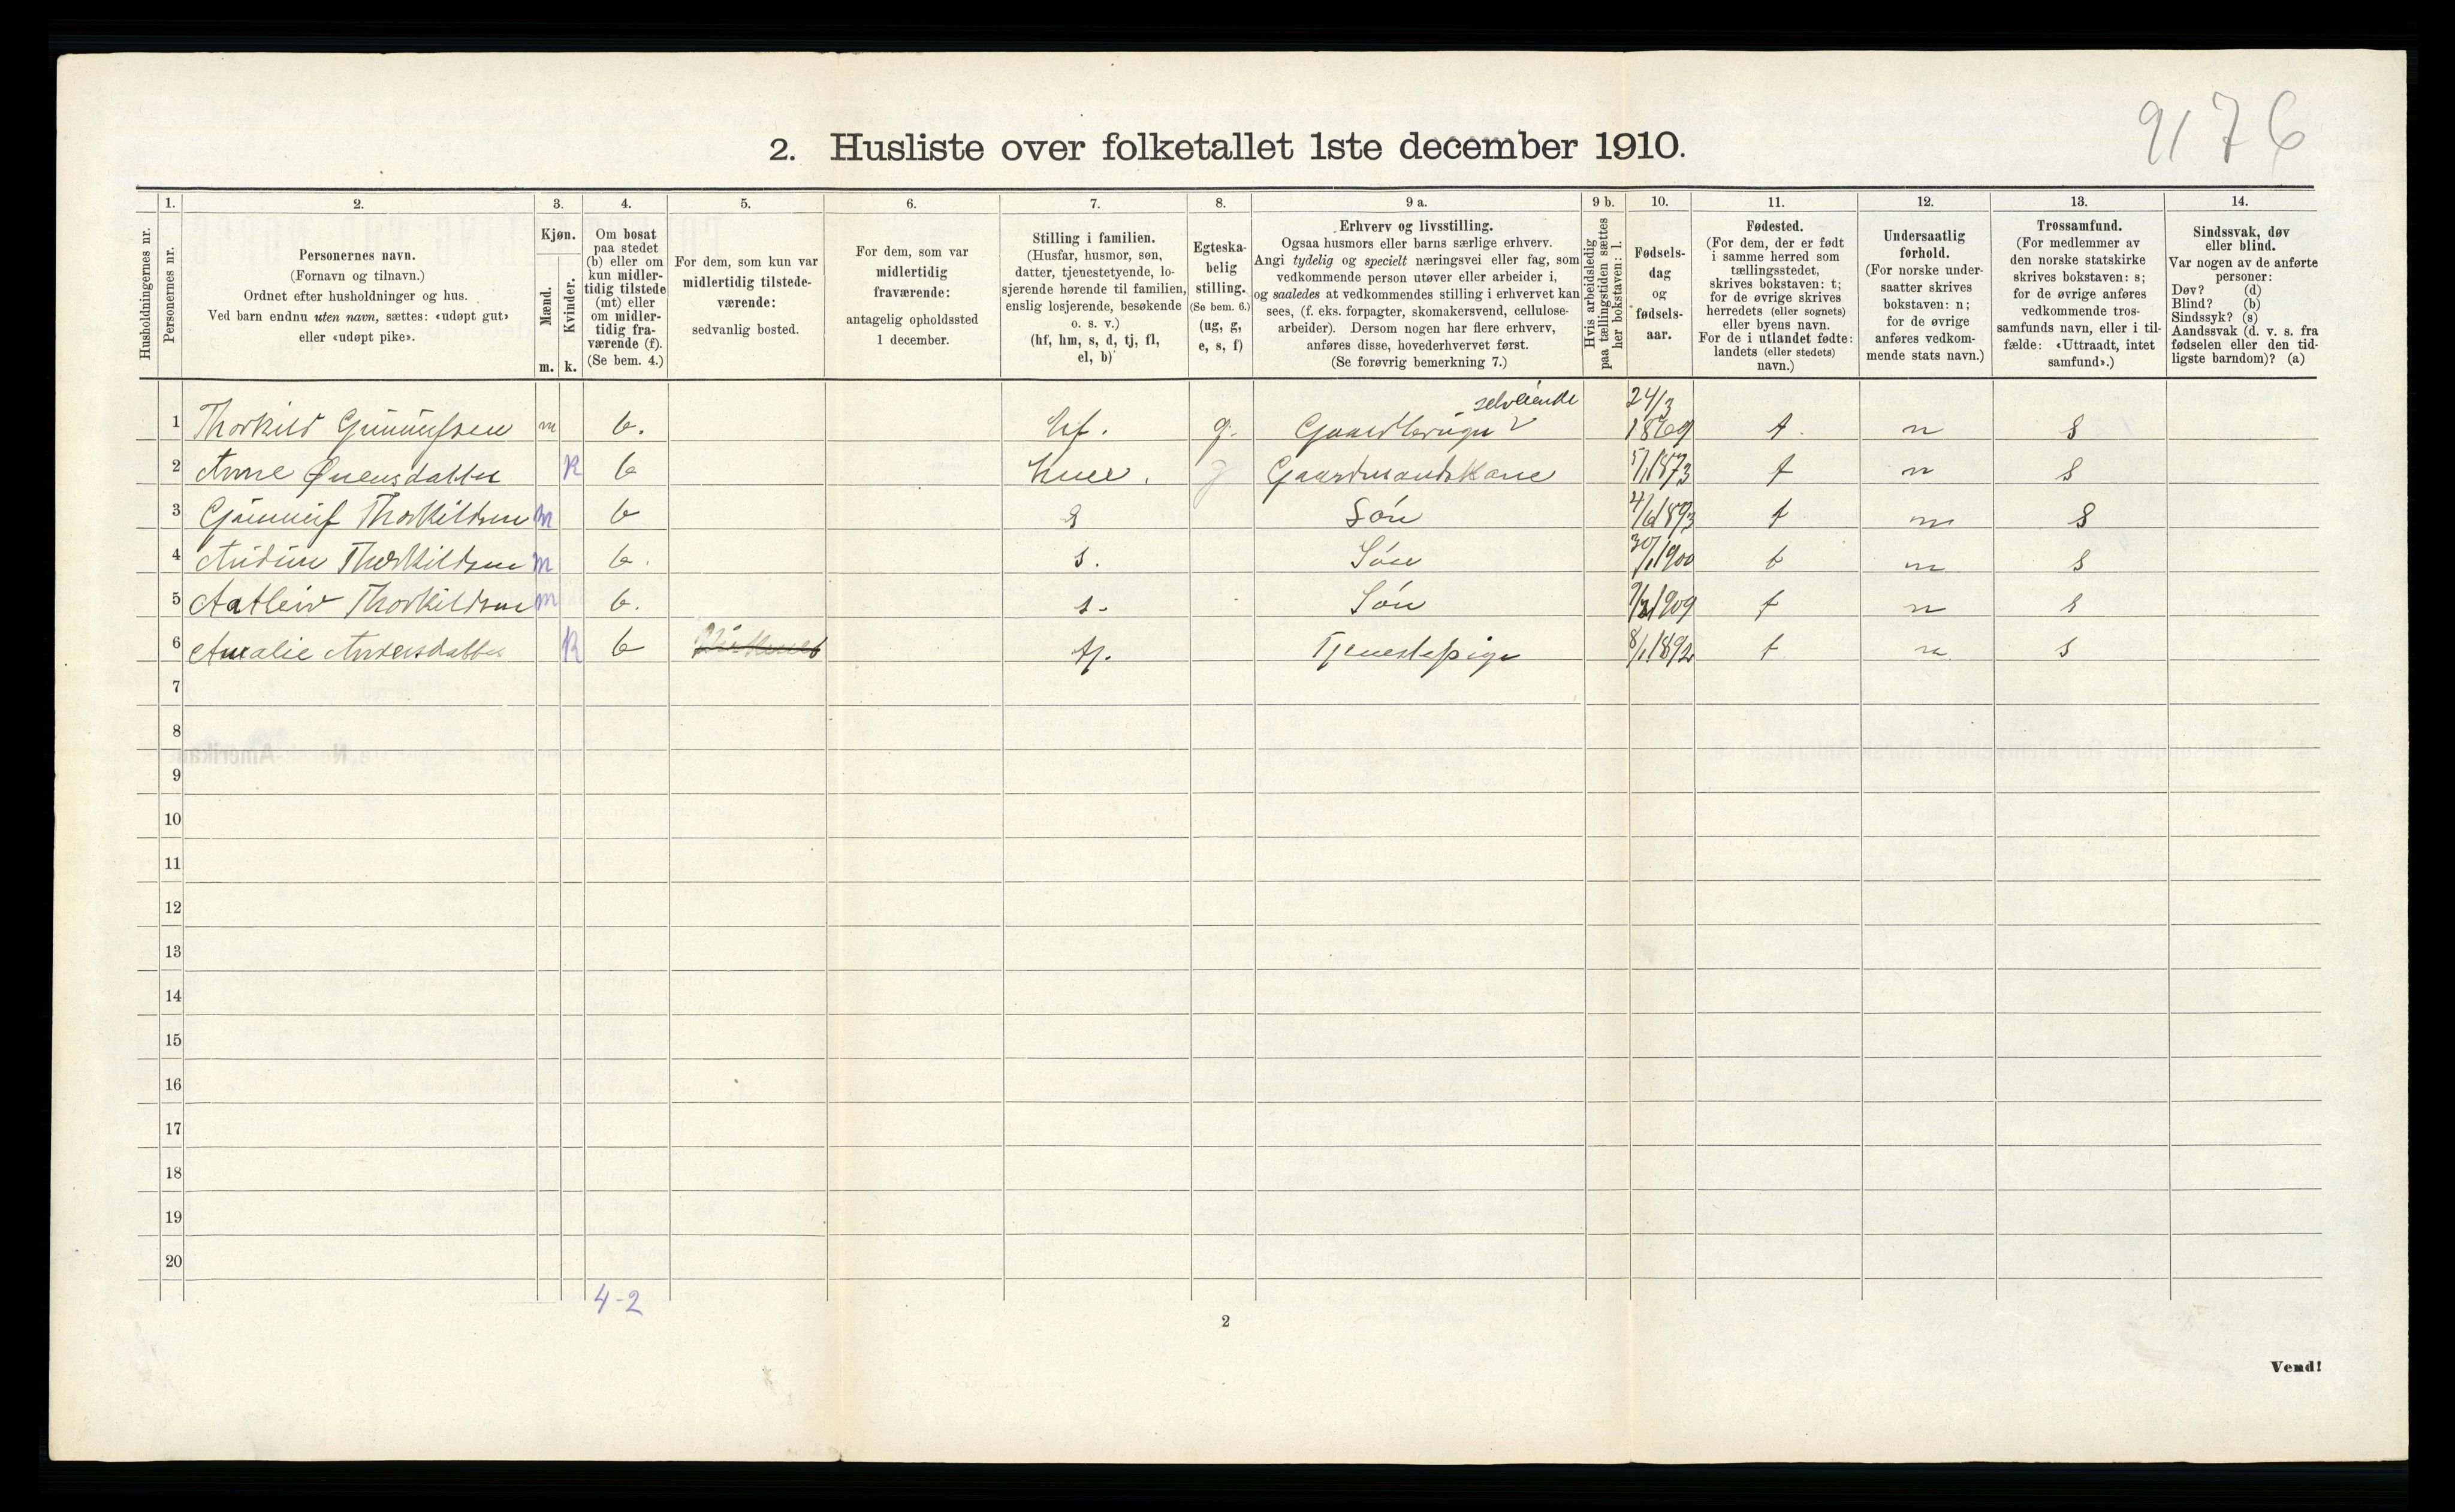 9176
2. Husliste over folketallet 1ste december 1910.
Husholdningernes nr.
1.
Personernes nr.
2.
Personernes navn.
(Fornavn og tilnavn.)
Ordnet efter husholdninger og hus.
Ved barn endnu uten navn, sættes: «udøpt gut»
eller «udøpt pike».
3.
Kjøn.
Mænd.
Kvinder.
m. k.
4.
Om bosat
paa stedet
(b) eller om
kun midler-
tidig tilstede
(mt) eller
om midler-
tidig fra-
værende (f).
(Se bem. 4.)
5.
For dem, som kun var
midlertidig tilstede-
værende:
sedvanlig bosted.
6.
For dem, som var
midlertidig
fraværende:
antagelig opholdssted
1 december.
7.
Stilling i familien.
(Husfar, husmor, søn,
datter, tjenestetyende, lo-
sjerende hørende til familien,
enslig losjerende, besøkende
o. s. v.)
(hf, hm, s, d, tj, fl,
el, b)
8.
Egteska-
belig
stilling.
(Se bem. 6.)
(ug, g,
e, s, f)
9 a.
Erhverv og livsstilling.
Ogsaa husmors eller barns særlige erhverv.
Angi tydelig og specielt næringsvei eller fag, som
vedkommende person utøver eller arbeider i,
og saaledes at vedkommendes stilling i erhvervet kan
sees, (f. eks. forpagter, skomakersvend, cellulose-
arbeider). Dersom nogen har flere erhverv,
anføres disse, hovederhvervet først.
(Se forøvrig bemerkning 7.)
9 b.
Hvis arbeidsledig
paa tællingstiden sættes
her bokstaven: l.
10.
Fødsels-
dag
og
fødsels-
aar.
11.
Fødested.
(For dem, der er født
i samme herred som
tællingsstedet,
skrives bokstaven: t;
for de øvrige skrives
herredets (eller sognets)
eller byens navn.
For de i utlandet fødte:
landets (eller stedets)
navn.)
12.
Undersaatlig
forhold.
(For norske under-
saatter skrives
bokstaven: n;
for de øvrige
anføres vedkom-
mende stats navn.)
13.
Trossamfund.
(For medlemmer av
den norske statskirke
skrives bokstaven: s;
for de øvrige anføres
vedkommende tros-
samfunds navn, eller i til-
fælde: «Uttraadt, intet
samfund».)
14.
Sindssvak, døv
eller blind.
Var nogen av de anførte
personer:
Døv? (d)
Blind? (b)
Sindssyk? (s)
Aandssvak (d. v. s. fra
fødselen eller den tid-
ligste barndom)? (a)
selveiende 24/3
1 Thorkild Gunnufsen m b. hf. g. Gaardbruger 1869 t. n s
2 Anne Øuensdatter K b g Gaardmandskone 1873 t n s
3 Gunnuf Thorkildsen m b s Søn 4/6 1893 t n s
4 Audun Thorkildsen m b. s. Søn 30/1 1900 t n s
5 Aatleiv Thorkildsen m b. s. Søn 1909 t n s
6 Amalie Andersdatter K b tj. Tjenestepige 8/1 1892 t n s
7
8
9
10
11
12
13
14
15
16
17
18
19
20
4-2
2
Vend!